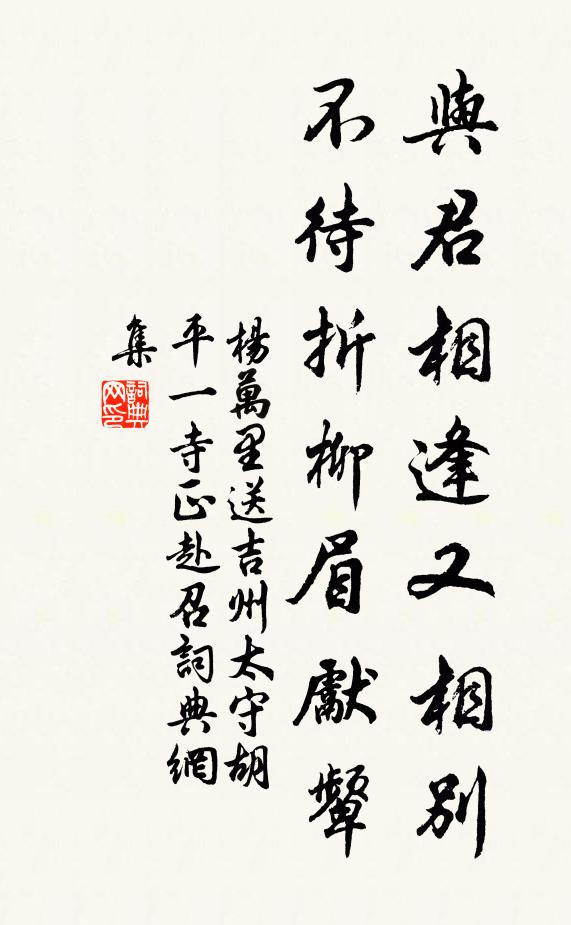 與君相逢又相別
不待折柳眉獻顰
楊萬里送吉州太守胡
平一寺正赴召詞典網
集
詞典
网印